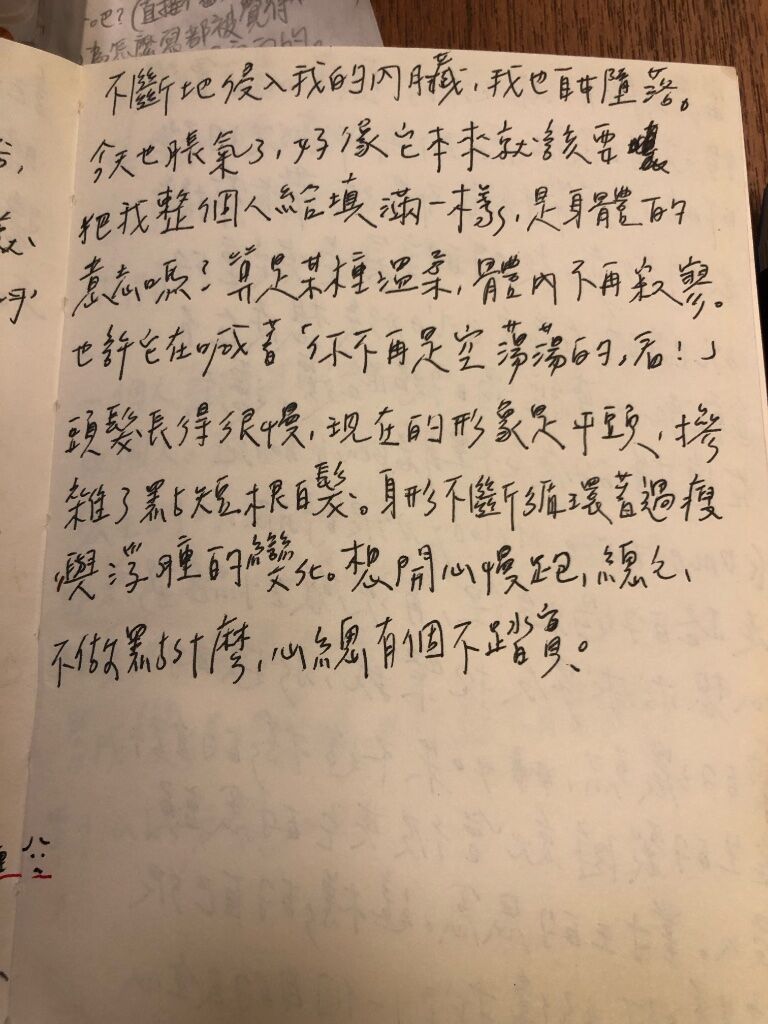 吧？（直接
為怎麼寫都被覺得
不斷地侵入我的內臟，我也自甘墮落。
今天也脹氣了，好像它本來就該要
把我整個人給填滿一樣，是身體的
意志嗎？算是某種溫柔，體內不再寂寥。
也許它在喊著「你不再是空蕩蕩的，看！」
頭髮長得很慢，現在的形象是平頭，摻
雜了點短根白髮。身形不斷循環著過瘦
與浮腫的變化。想開心慢跑，總之，
不做點什麼，心總有個不踏實。